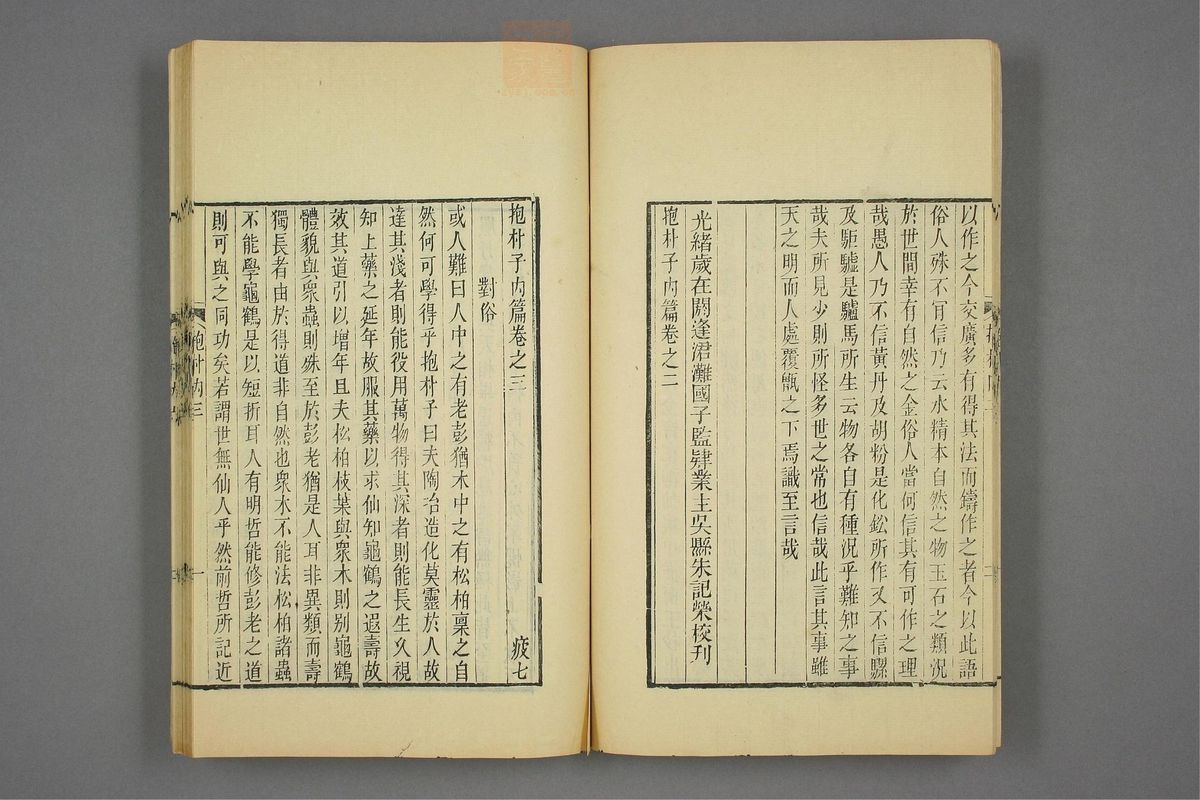 以作之今交廣多有得其法而鑄作之者今以此語
俗人殊不肎信乃云水精本自然之物玉石之類況
於世間幸有自然之金俗人當何信其有可作之理
哉愚人乃不信黃丹及胡粉是化鉛所作又不信騾
及駏驉是驢馬所生云物各自有種況乎難知之事
哉夫所見少則所怪多世之常也信哉此言其事雖
天之明而人處覆甑之下焉識至言哉
光緒歲在閼逢涒灘國子監肄業主吳縣朱記榮校刊
抱朴子內篇卷之二
抱朴子內篇卷之三
疲七
對俗
或人難曰人中之有老彭猶木中之有松柏稟之自
然何可學得乎抱朴子曰夫陶冶造化莫靈於人故
達其淺者則能役用萬物得其深者則能長生久視
知上藥之延年故服其藥以求仙知龜鶴之遐壽故
效其道引以增年且夫松柏枝葉與眾木則別龜鶴
體貌與眾蟲則殊至於彭老猶是人耳非異類而壽
獨長者由於得道非自然也眾木不能法松柏諸蟲
不能學龜鶴是以短折耳人有明哲能修彭老之道
則可與之同功矣若謂世無仙人乎然前哲所記近
抱朴內三
一